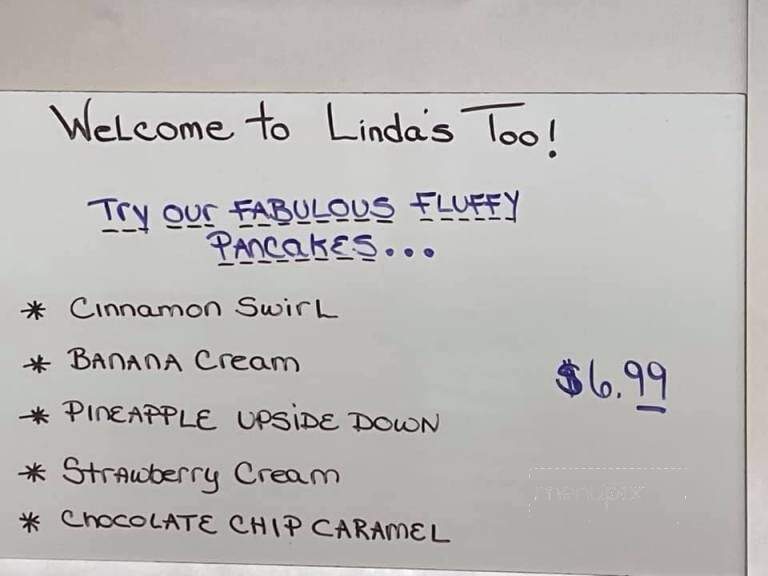 Welcome to Linda's Too!
Try our FABULOUS FLUFFY
PANCAKES...
* Cinnamon Swirl
* BANANA Cream
* PINEAPPLE UPSIDE DOWN
$6.99
* Strawberry Cream
* CHOCOLATE CHIP CARAMEL
menupix